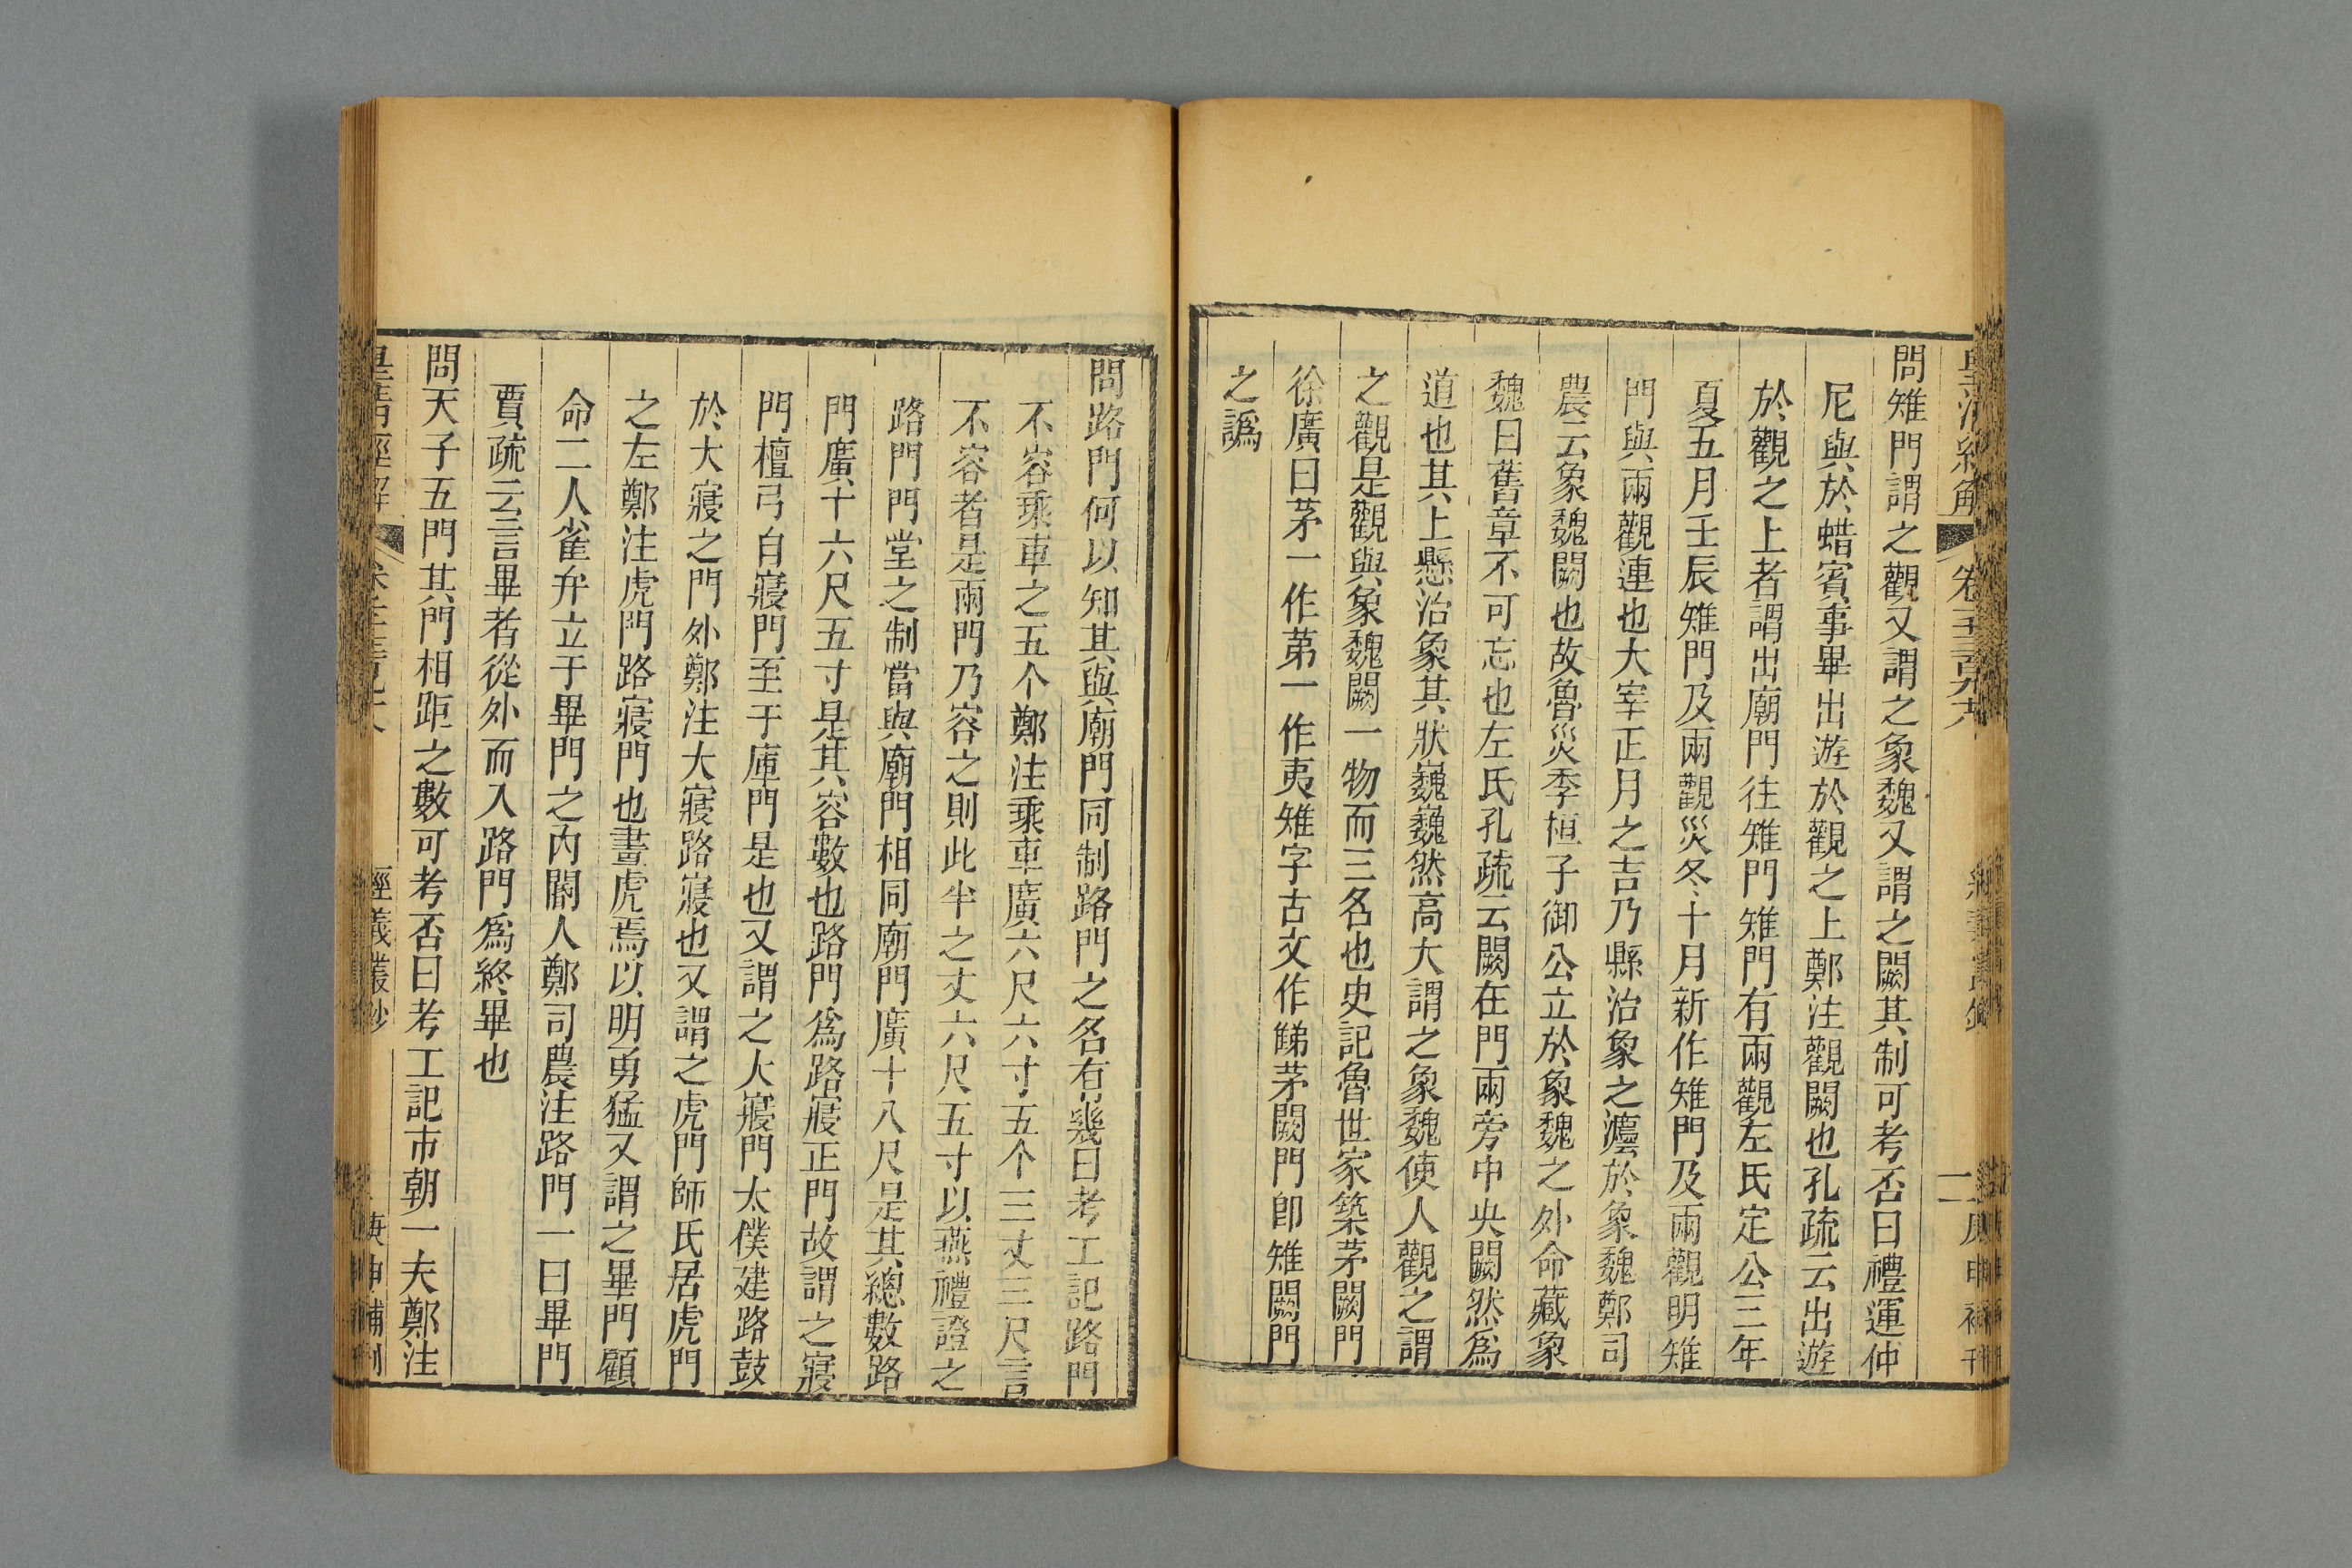 問雉門謂之觀又謂之象魏又謂之闕其制可考否曰禮運仲
尼與於蜡賓事畢出遊於觀之上鄭注觀闕也孔疏云出遊
於觀之上者謂出廟門往雉門雉門有兩觀左氏定公三年
夏五月壬辰雉門及兩觀災冬十月新作雉門及兩觀明雉
門與兩觀連也大宰正月之吉乃縣治象之灋於象魏鄭司
農云象魏闕也故魯災季桓子御公立於象魏之外命藏象
魏曰舊章不可忘也左氏孔疏云闕在門兩旁中央闕然爲
道也其上懸治象其狀巍巍然高大謂之象魏使人觀之謂
之觀是觀與象魏闕一物而三名也史記魯世家築茅闕門
徐廣曰茅一作第一作夷雉字古文作䬾茅闕門卽雉闕門
之譌
問路門何以知其與廟門同制路門之名有幾曰考工記路門
不容乘車之五个鄭注乘車廣六尺六寸五个三丈三尺言
不容者是兩門乃容之則此半之丈六尺五寸以燕禮證之
路門門堂之制當與廟門相同廟門廣十八尺是其總數路
門廣十六尺五寸是其容數也路門爲路寢正門故謂之寢
門檀弓自寢門至于庫門是也又謂之大寢門太僕建路鼓
於大寢之門外鄭注大寢路寢也又謂之虎門師氏居虎門
之左鄭注虎門路寢門也畫虎焉以明勇猛又謂之畢門顧
命二人雀弁立于畢門之內閽人鄭司農注路門一曰畢門
賈疏云言畢者從外而入路門爲終畢也
問天子五門其門相距之數可考否曰考工記市朝一夫鄭注
皇清經解
經義叢鈔
庚申補刊